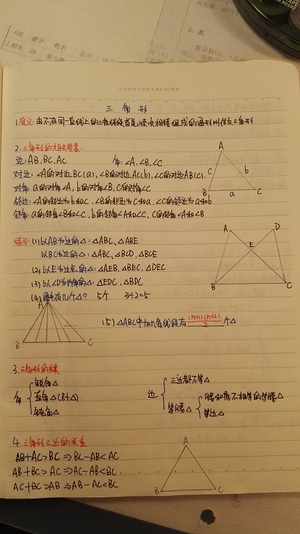 三 角 形
1.定义: 由不在同一直线上的三条线段首尾顺次相接组成的图形叫做三角形
2.三角形的相关要素
边: AB, BC, AC 角: ∠A, ∠B, ∠C
对边: ∠A的对边BC(a), ∠B的对边AC(b), ∠C的对边AB(c).
对角: a的对角∠A, b的对角∠B, c的对角∠C
邻边: ∠A的邻边为b和c, ∠B的邻边为c和a, ∠C的邻边为a和b
邻角: a的邻角∠B和∠C, b的邻角∠A和∠C, c的邻角∠A和∠B
A
c b
B a C
练习: (1) 以AB为边的△: △ABC, △ABE
以BC为边的△: △ABC, △BCD, △BCE
(2) 以E为顶点的△: △AEB, △BEC, △DEC
(3) 以∠D为角的△: △EDC, △BDC
(4) 图中有几个△? 5个 3+2=5
A D
E
B C
A
B C
(5) △ABC中有n条线段有 个△
3. 三角形的分类
角 锐角△
直角△(Rt△)
钝角△
边 三边都不等△
等腰△ 腰和底不相等的等腰△
等边△
4. 三角形三边的关系
AB+AC>BC ⇒ BC-AB<AC
AB+BC>AC ⇒ AC-AB<BC
AC+BC>AB ⇒ AB-AC<BC
A
B C